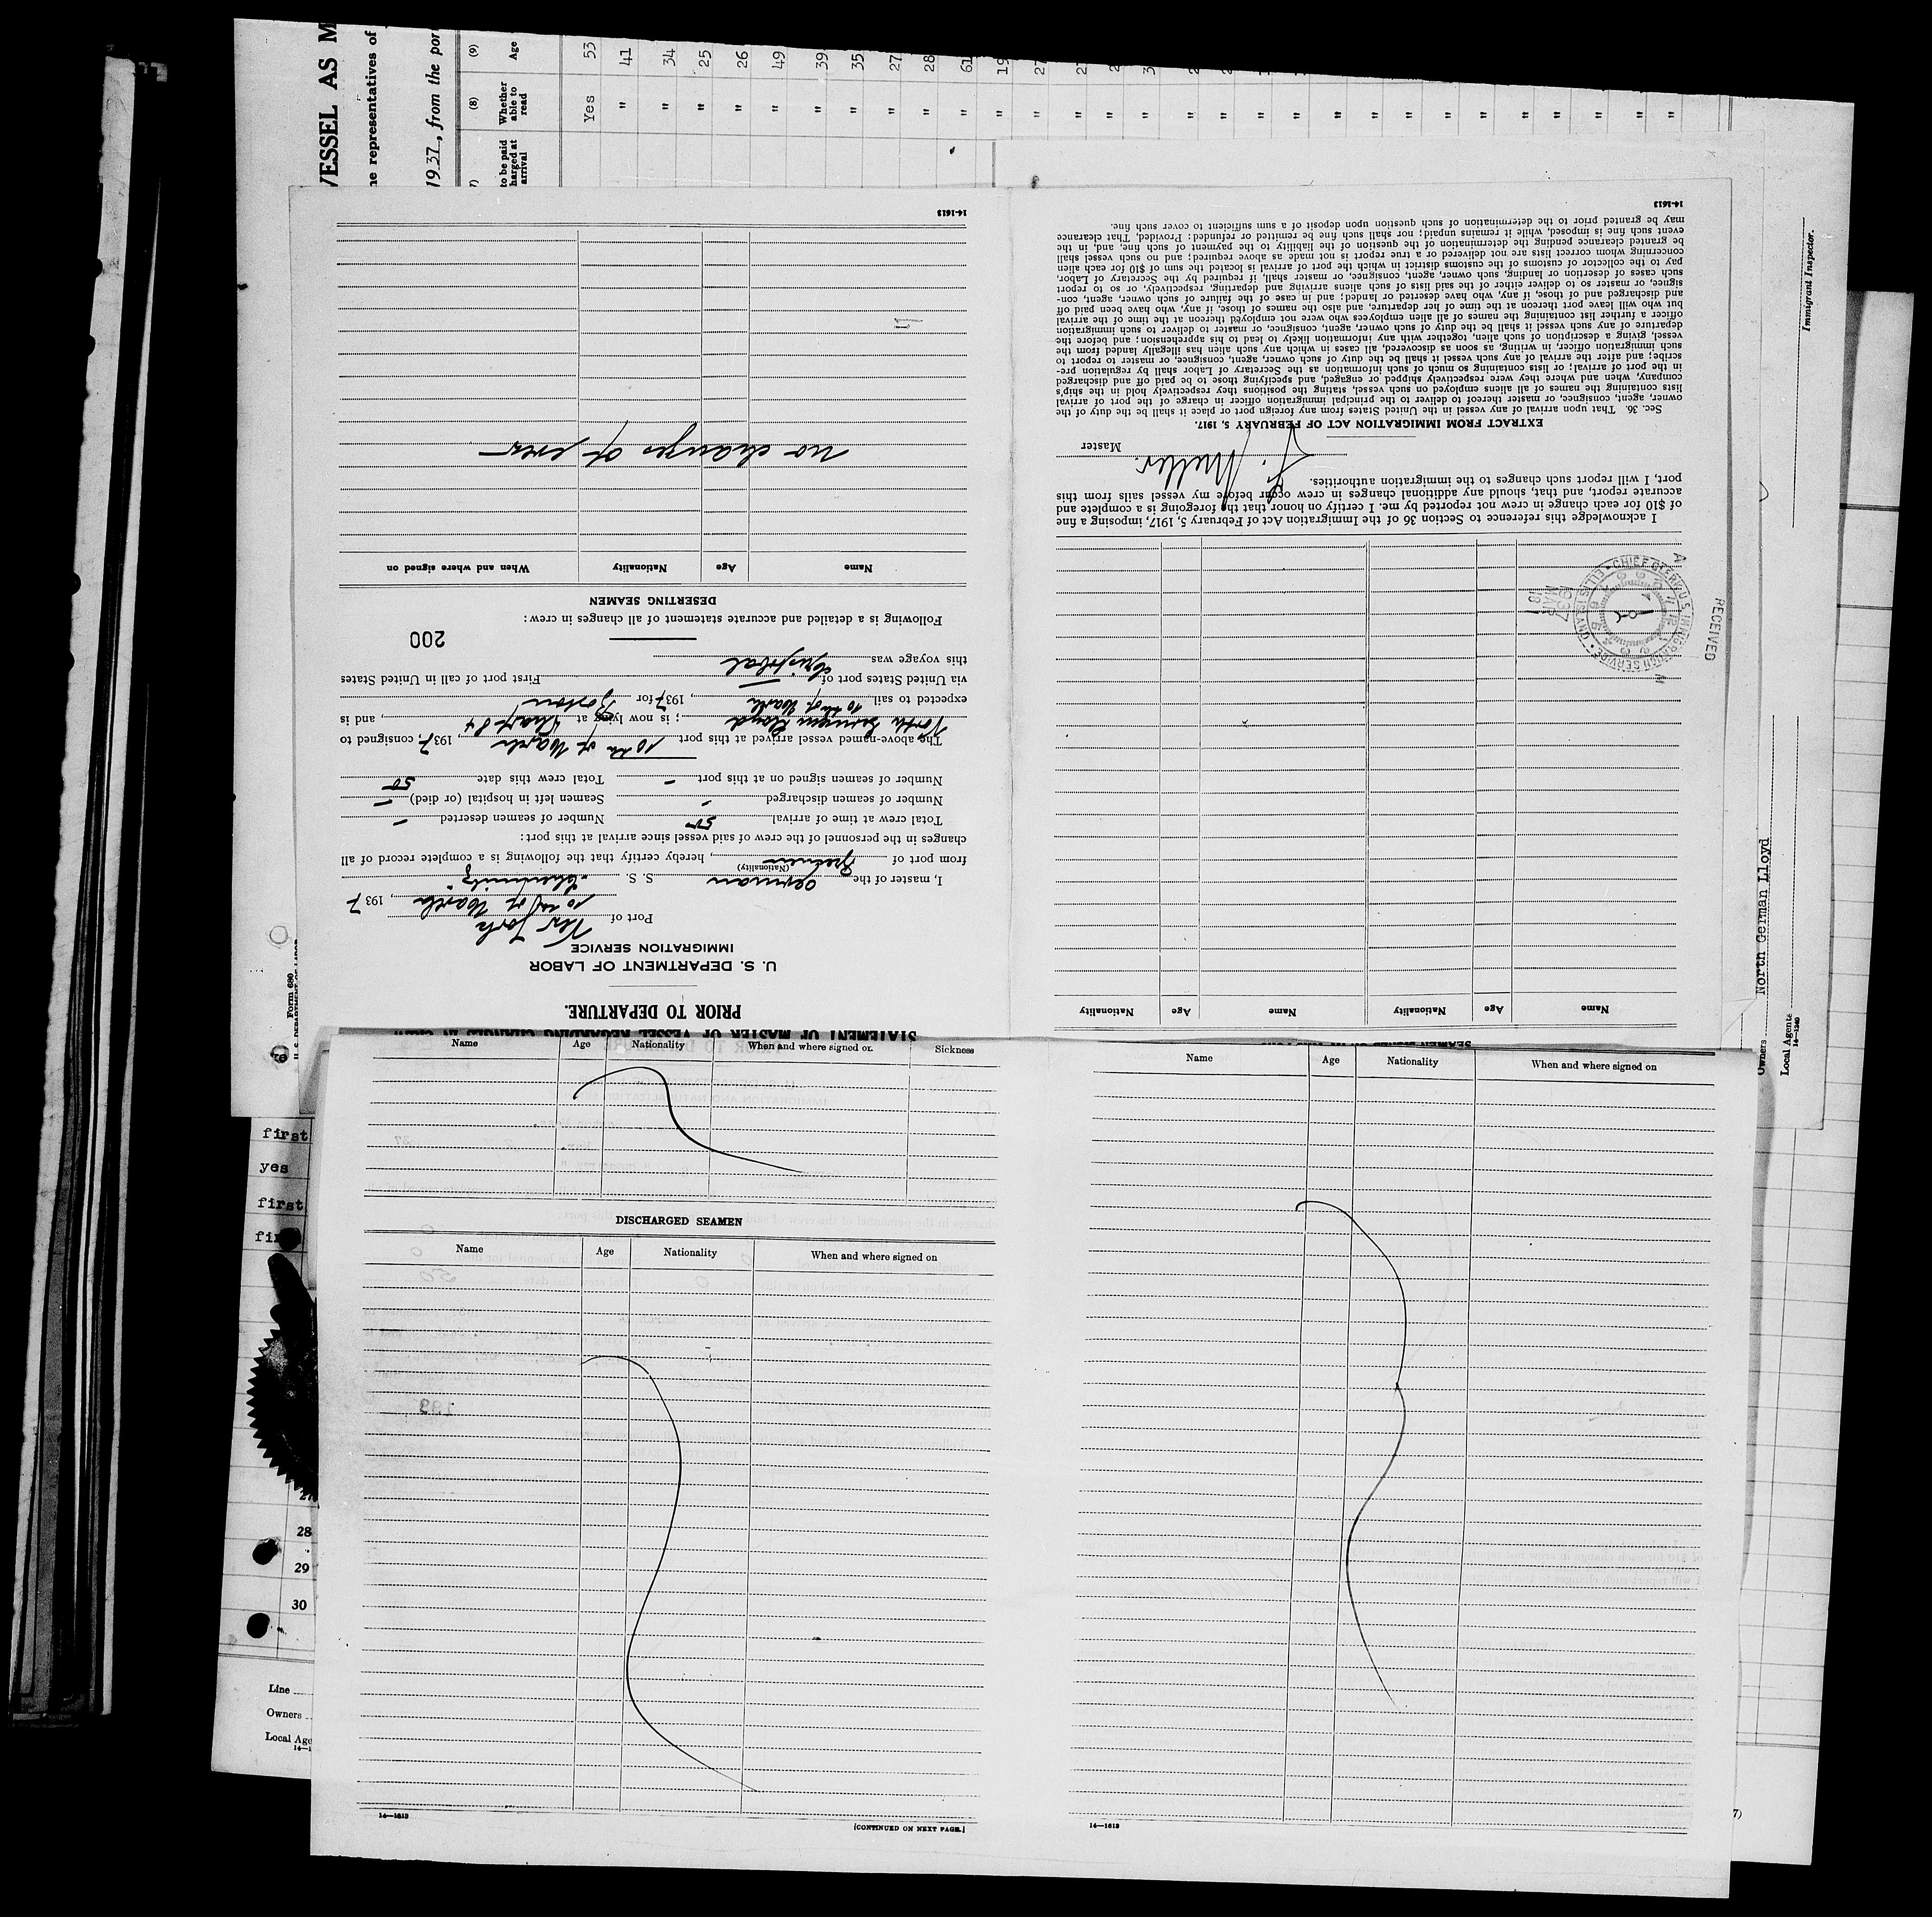 VESSEL AS M
ne representatives of
1937, from the por
(9)
Age
(8)
Whether
able to
read
to be paid
harged at
arrival
Yes
"
53
41
34
25
26
49
39
35
27
28
61
19
27
Immigrant Inspector.
STATEMENT OF MASTER OF VESSEL REGARDING CHANGES IN CREW
PRIOR TO DEPARTURE.
U. S. DEPARTMENT OF LABOR
IMMIGRATION SERVICE
Port of New York
10th of March, 1937
I, master of the German S. S. "Chemnitz"
(Nationality)
from port of Bremen, hereby certify that the following is a complete record of all
changes in the personnel of the crew of said vessel since arrival at this port:
Total crew at time of arrival 50 Number of seamen deserted –
Number of seamen discharged – Seamen left in hospital (or died) –
Number of seamen signed on at this port – Total crew this date 50
The above-named vessel arrived at this port 10th of March, 1937, consigned to
North German Lloyd; is now lying at Wharf 84, and is
expected to sail 10th of March, 1937 for Boston
via United States port of — First port of call in United States
this voyage was Cristobal
200
Following is a detailed and accurate statement of all changes in crew:
DESERTING SEAMEN
Name Age Nationality When and where signed on
no changes of crew
14-1613
Name Age Nationality Name Age Nationality
RECEIVED
CHIEF CLERK U.S. IMMIGRATION SERVICE • ELLIS ISLAND •
1937
MAR
18
A
M
I acknowledge this reference to Section 36 of the Immigration Act of February 5, 1917, imposing a fine
of $10 for each change in crew not reported by me. I certify on honor that the foregoing is a complete and
accurate report, and that, should any additional changes in crew occur before my vessel sails from this
port, I will report such changes to the immigration authorities.
Master
EXTRACT FROM IMMIGRATION ACT OF FEBRUARY 5, 1917.
Sec. 36. That upon arrival of any vessel in the United States from any foreign port or place it shall be the duty of the
owner, agent, consignee, or master thereof to deliver to the principal immigration officer in charge of the port of arrival
lists containing the names of all aliens employed on such vessel, stating the positions they respectively hold in the ship's
company, when and where they were respectively shipped or engaged, and specifying those to be paid off and discharged
in the port of arrival; or lists containing so much of such information as the Secretary of Labor shall by regulation pre-
scribe; and after the arrival of any such vessel it shall be the duty of such owner, agent, consignee, or master to report to
such immigration officer, in writing, as soon as discovered, all cases in which any such alien has illegally landed from the
vessel, giving a description of such alien, together with any information likely to lead to his apprehension; and before the
departure of any such vessel it shall be the duty of such owner, agent, consignee, or master to deliver to such immigration
officer a further list containing the names of all alien employees who were not employed thereon at the time of the arrival
but who will leave port thereon at the time of her departure, and also the names of those, if any, who have been paid off
and discharged and of those, if any, who have deserted or landed; and in case of the failure of such owner, agent, con-
signee, or master so to deliver either of the said lists of such aliens arriving and departing, respectively, or so to report
such cases of desertion or landing, such owner, agent, consignee, or master shall, if required by the Secretary of Labor,
pay to the collector of customs of the customs district in which the port of arrival is located the sum of $10 for each alien
concerning whom correct lists are not delivered or a true report is not made as above required; and no such vessel shall
be granted clearance pending the determination of the question of the liability to the payment of such fine, and, in the
event such fine is imposed, while it remains unpaid; nor shall such fine be remitted or refunded: Provided, That clearance
may be granted prior to the determination of such question upon deposit of a sum sufficient to cover such fine.
14-1613
Form 680
Owners North German Lloyd
Local Agents
14-1240
first
yes
first
28
29
30
Line
Owners
Local Age
Name Age Nationality When and where signed on Sickness
DISCHARGED SEAMEN
Name Age Nationality When and where signed on
14—1613
[CONTINUED ON NEXT PAGE.]
Name Age Nationality When and where signed on
14—1613
7)